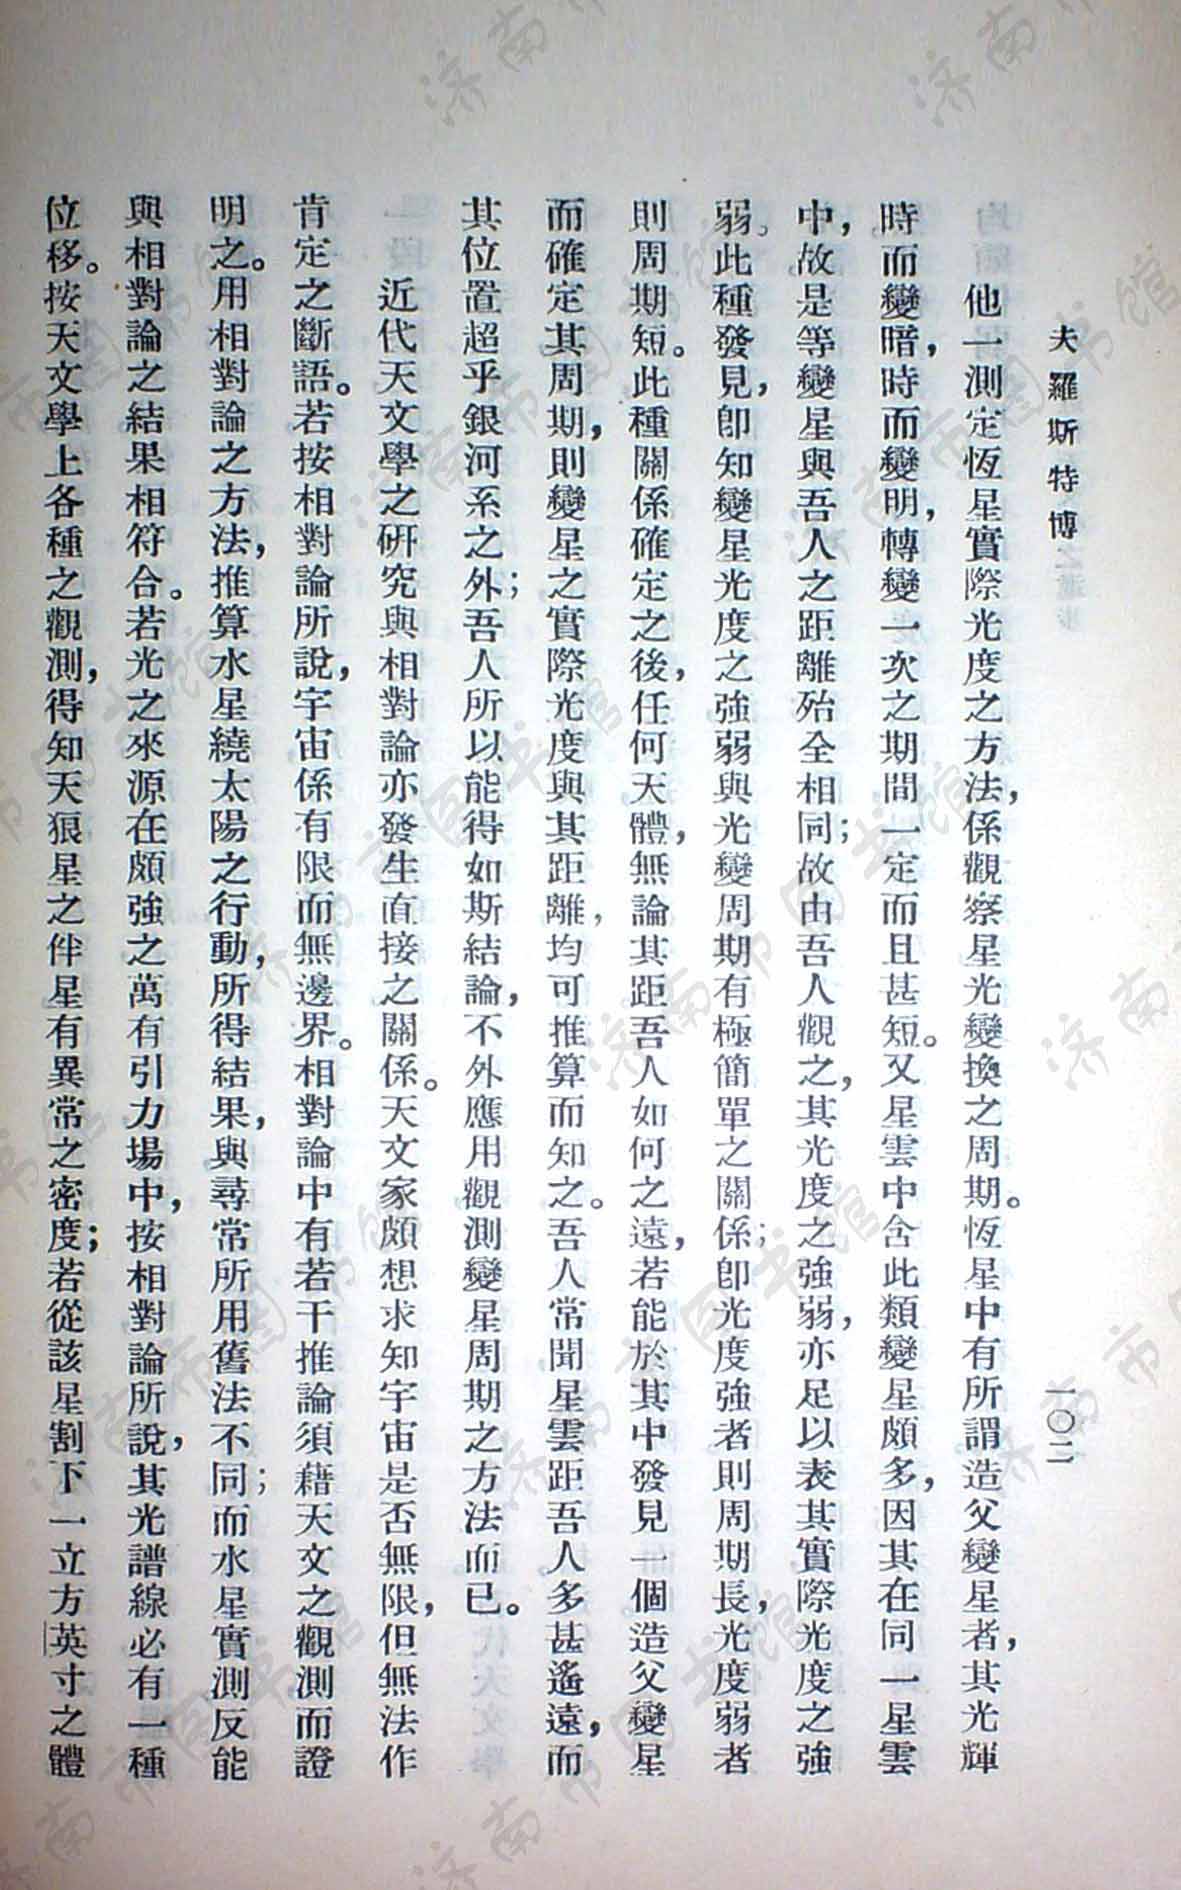 夫羅斯特博
一〇二
他一測定恆星實際光度之方法，係觀察星光變換之周期。恆星中有所謂造父變星者，其光輝
時而變暗，時而變明，轉變一次之期間一定而且甚短。又星雲中含此類變星頗多，因其在同一星雲
中，故是等變星與吾人之距離殆全相同；故由吾人觀之，其光度之強弱，亦足以表其實際光度之強
弱。此種發見，卽知變星光度之強弱與光變周期有極簡單之關係；卽光度強者則周期長，光度弱者
則周期短。此種關係確定之後，任何天體，無論其距吾人如何之遠，若能於其中發見一個造父變星
而確定其周期，則變星之實際光度與其距離，均可推算而知之。吾人常聞星雲距吾人多甚遙遠，而
其位置超乎銀河系之外；吾人所以能得如斯結論，不外應用觀測變星周期之方法而已。
近代天文學之研究與相對論亦發生直接之關係。天文家頗想求知宇宙是否無限，但無法作
肯定之斷語。若按相對論所說，宇宙係有限而無邊界。相對論中有若干推論須藉天文之觀測而證
明之。用相對論之方法，推算水星繞太陽之行動，所得結果，與尋常所用舊法不同；而水星實測反能
與相對論之結果相符合。若光之來源在頗強之萬有引力場中，按相對論所說，其光譜線必有一種
位移。按天文學上各種之觀測，得知天狼星之伴星有異常之密度；若從該星割下一立方英寸之體
濟南市图书馆